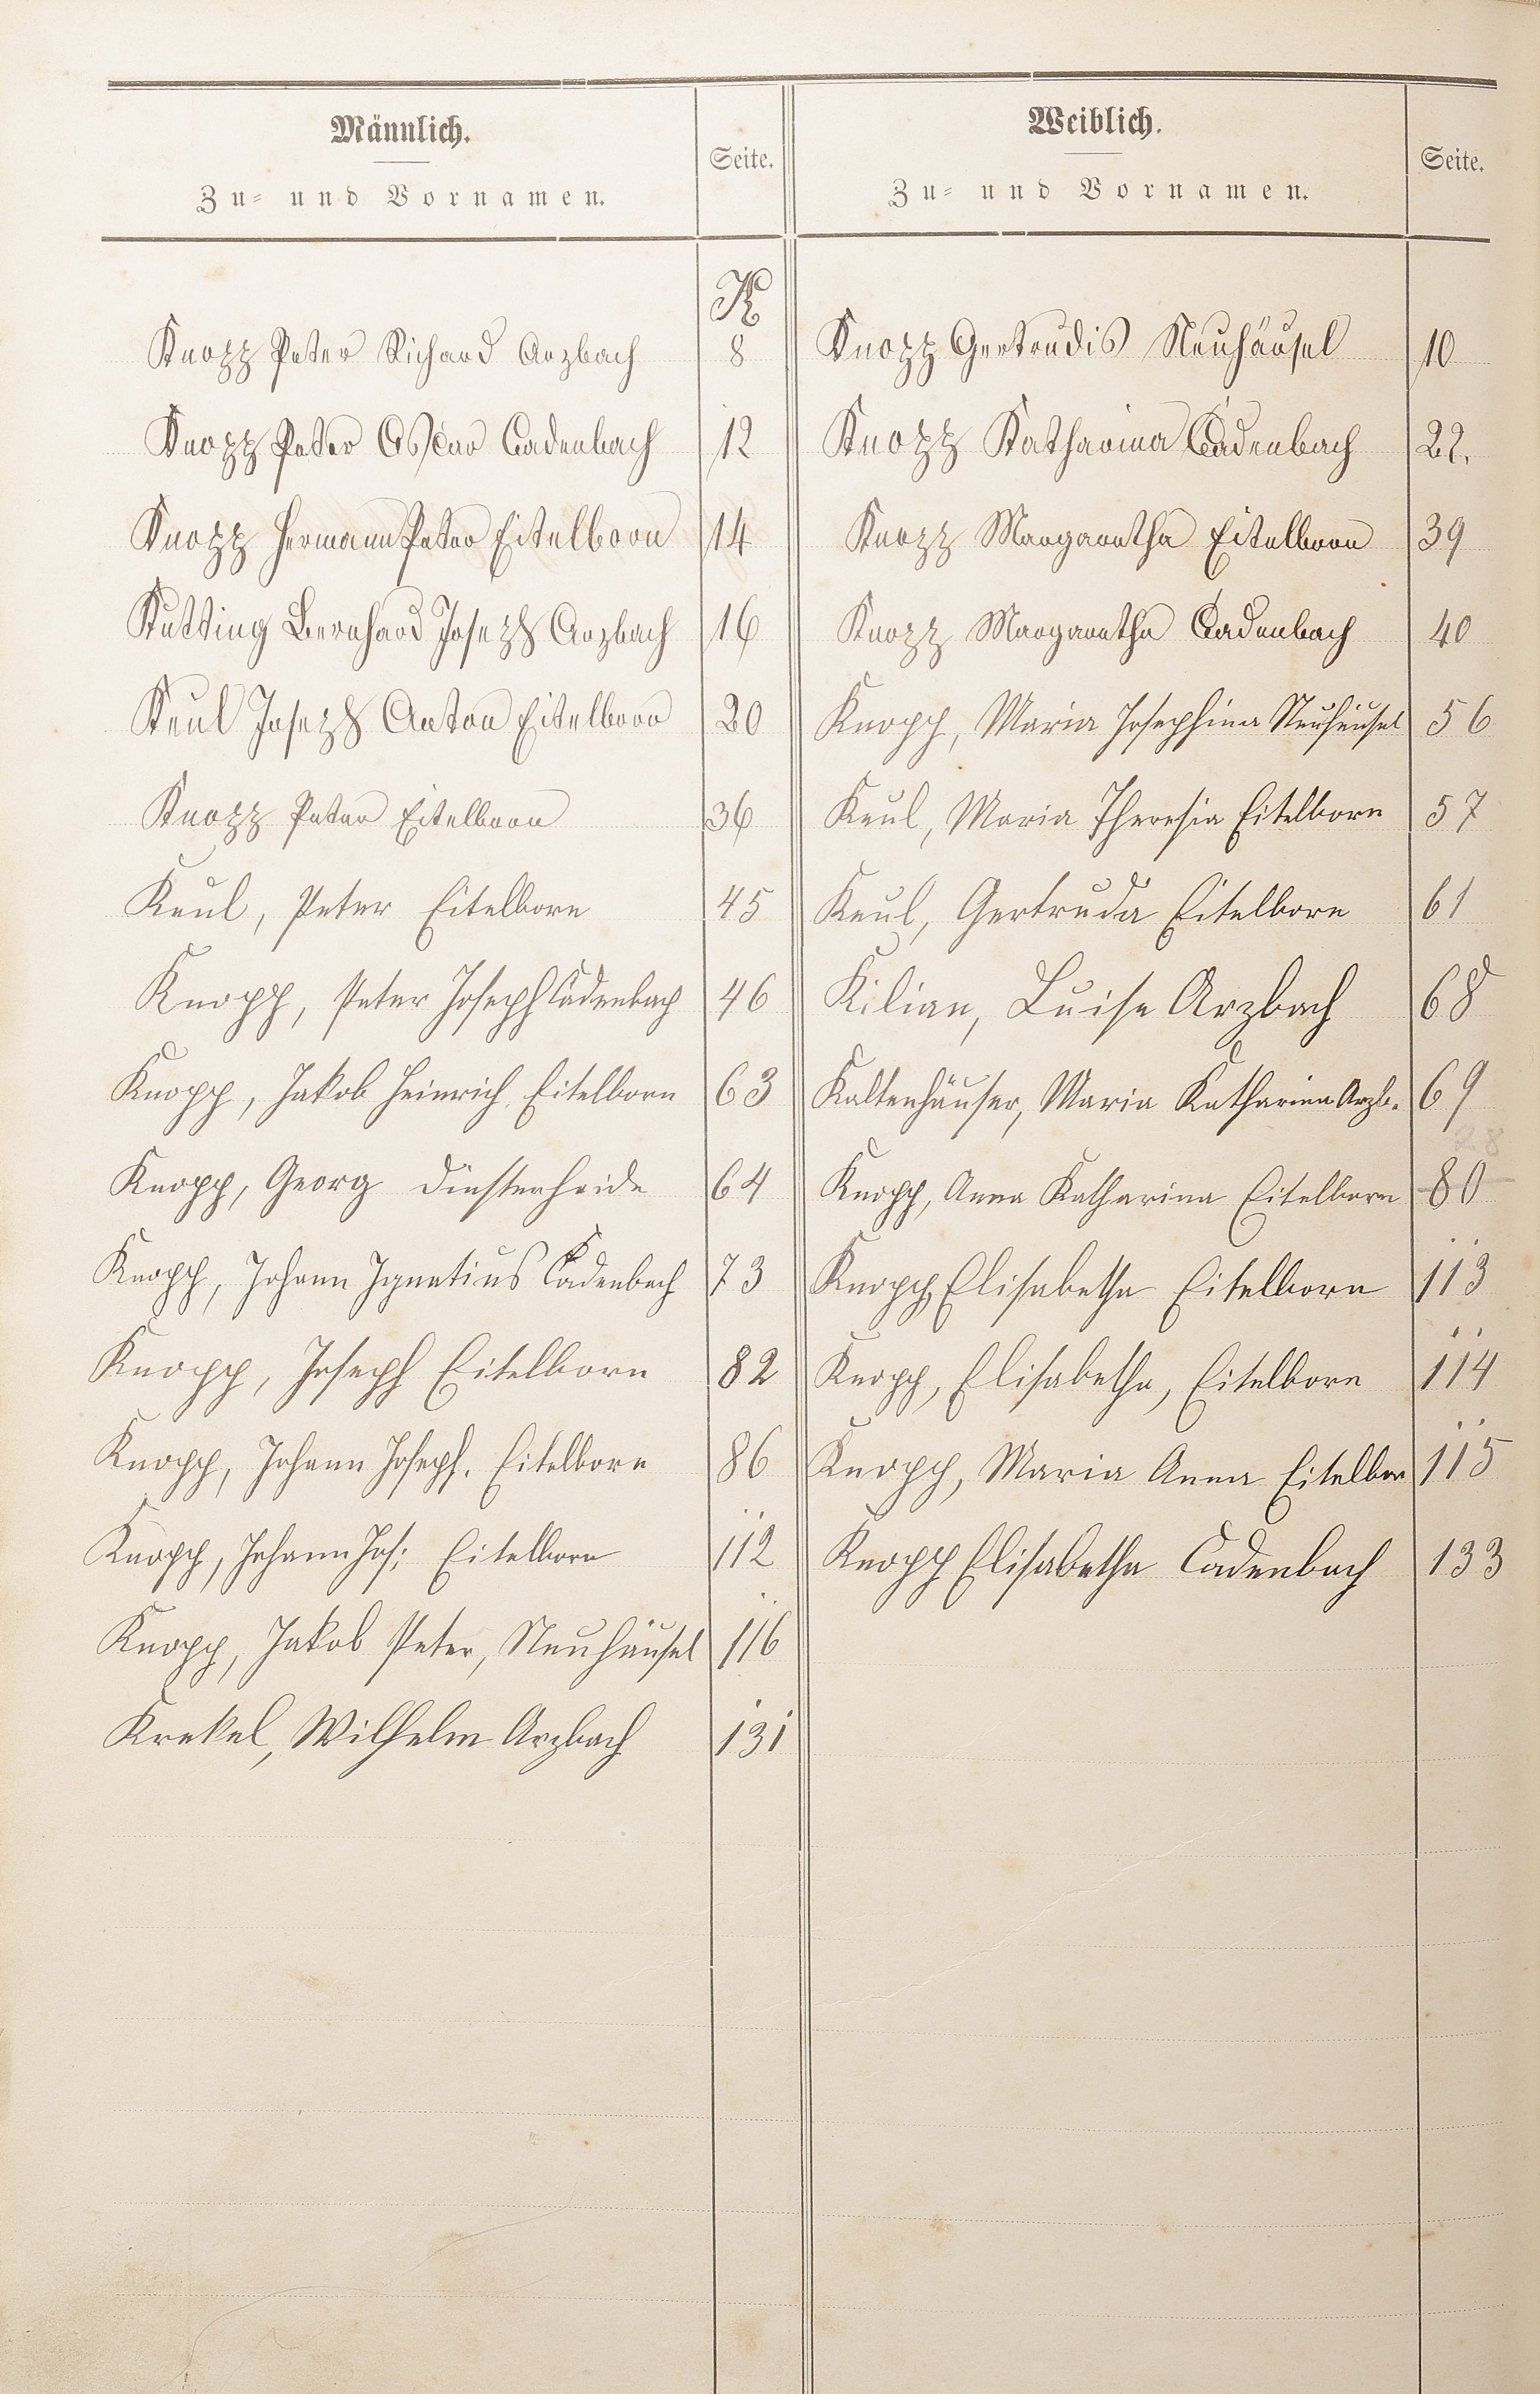 Männlich.
Zu- und Vornamen.
Seite.
Weiblich.
Zu- und Vornamen.
Seite.
K
Knopp Peter Richard Arzbach 8
Knopp Peter Oskar Cadenbach 12
Knopp Hermann Peter Eitelborn 14
Kutting Bernhard Joseph Arzbach 16
Keul Joseph Anton Eitelborn 20
Knopp Peter Eitelborn 36
Keul, Peter Eitelborn 45
Knopp, Peter Joseph Cadenbach 46
Knopp, Jakob Heinrich, Eitelborn 63
Knopp, Georg Dünsterheide 64
Knopp, Johann Ignatius Cadenbach 73
Knopp, Joseph Eitelborn 82
Knopp, Johann Joseph. Eitelborn 86
Knopp, Johann Jos: Eitelborn 112
Knopp, Jakob Peter, Neuhäusel 116
Krekel, Wilhelm Arzbach 131
Knopp Gertrudis Neuhäusel 10
Knopp Katharina Cadenbach 22.
Knopp Margaretha Eitelborn 39
Knopp Margaretha Cadenbach 40
Knopp, Maria Josephina Neuhäusel 56
Keul, Maria Theresia Eitelborn 57
Keul, Gertruda Eitelborn 61
Kilian, Luise Arzbach 68
Kaltenhäuser, Maria Katharina Arzb. 69
Knopp, Anna Katharina Eitelborn 80
Knopp, Elisabetha Eitelborn 113
Knopp, Elisabetha, Eitelborn 114
Knopp, Maria Anna Eitelbor 115
Knopp Elisabetha Cadenbach 133